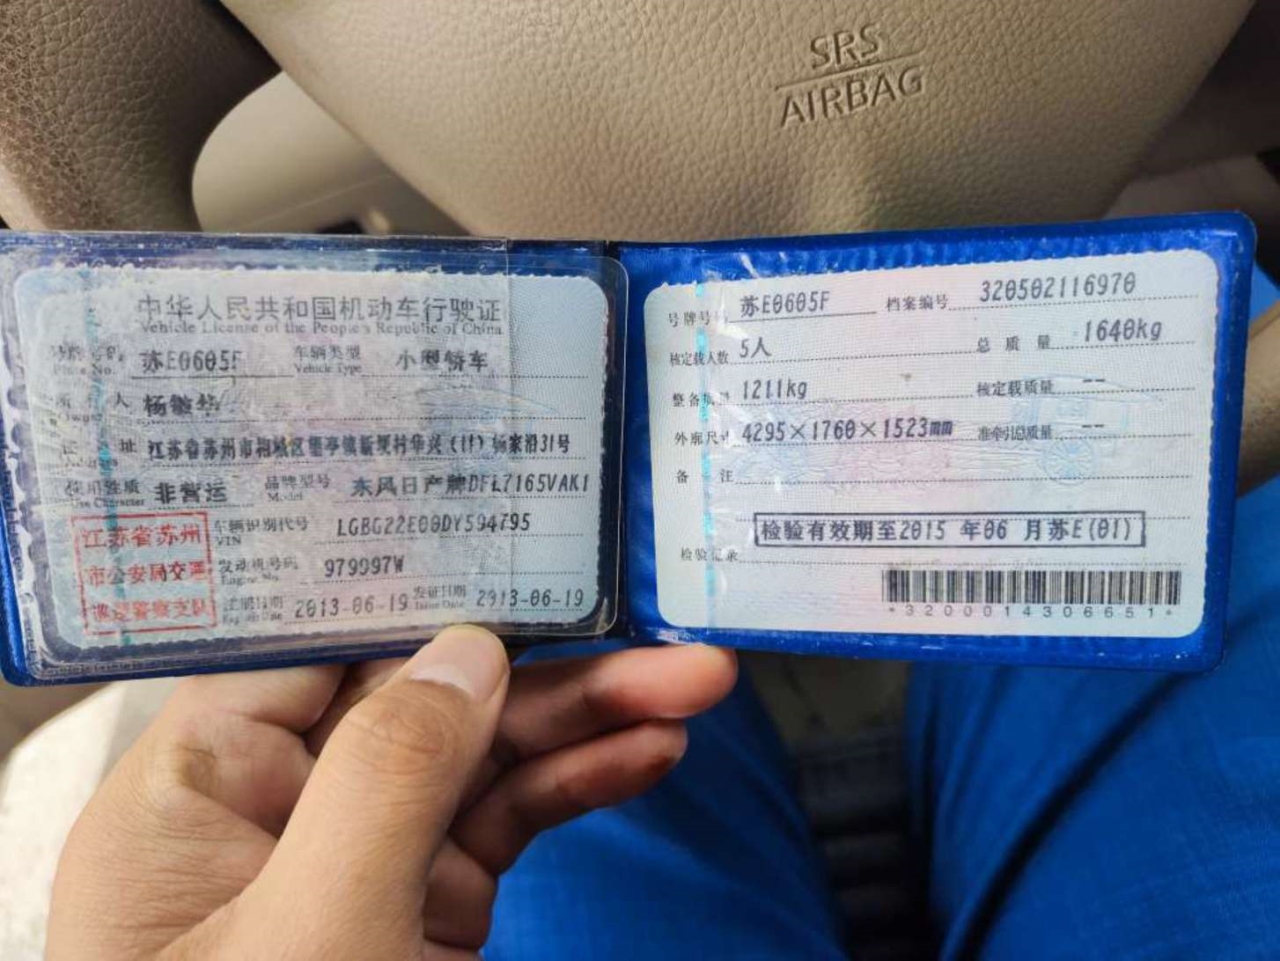 SRS
AIRBAG
中华人民共和国机动车行驶证
Vehicle License of the People's Republic of China
号牌号码 苏E0605F 车辆类型 小型轿车
Vehicle Type
所有人 杨
住址 江苏省苏州市相城区 杨家沿31号
使用性质 非营运 品牌型号 东风日产牌DFL7165VAK1
Use Character Model
江苏省苏州
市公安局交
巡逻警察支队
车辆识别代号 LGBG22E00DY594795
VIN
发动机号码 979997W
Engine No.
注册日期 2013-06-19 发证日期 2013-06-19
Issue Date
号牌号码 苏E0605F 档案编号 320502116970
核定载人数 5人 总质量 1640kg
整备质量 1211kg 核定载质量 --
外廓尺寸 4295×1760×1523mm 准牵引总质量 --
备注
检验有效期至2015 年06 月苏E(01)
检验记录
*3200014306651*